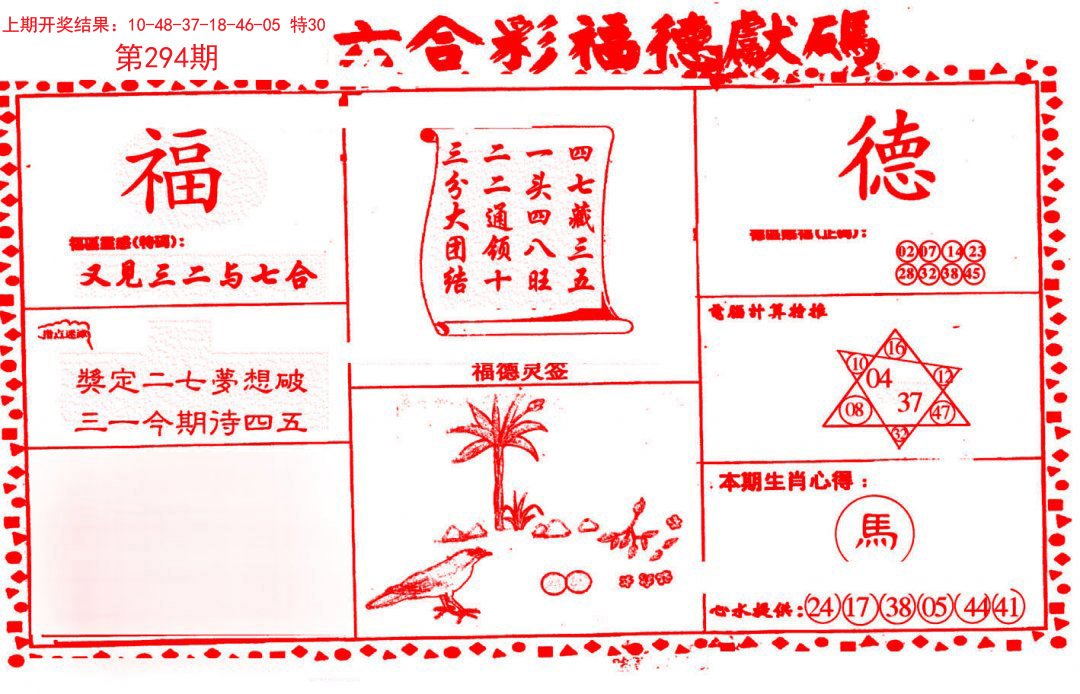 上期开奖结果：10-48-37-18-46-05 特30
第294期
六合彩福德獻碼
福
(特碼)：
又見三二与七合
獎定二七夢想破
三一今期待四五
四七藏三五
一头四八旺
二二通领十
三分大团结
福德灵签
德
02 07 14 23
28 32 38 45
電腦計算特推
16
10 12
04
37
08 47
32
本期生肖心得：
馬
心水提供：24 17 38 05 44 41